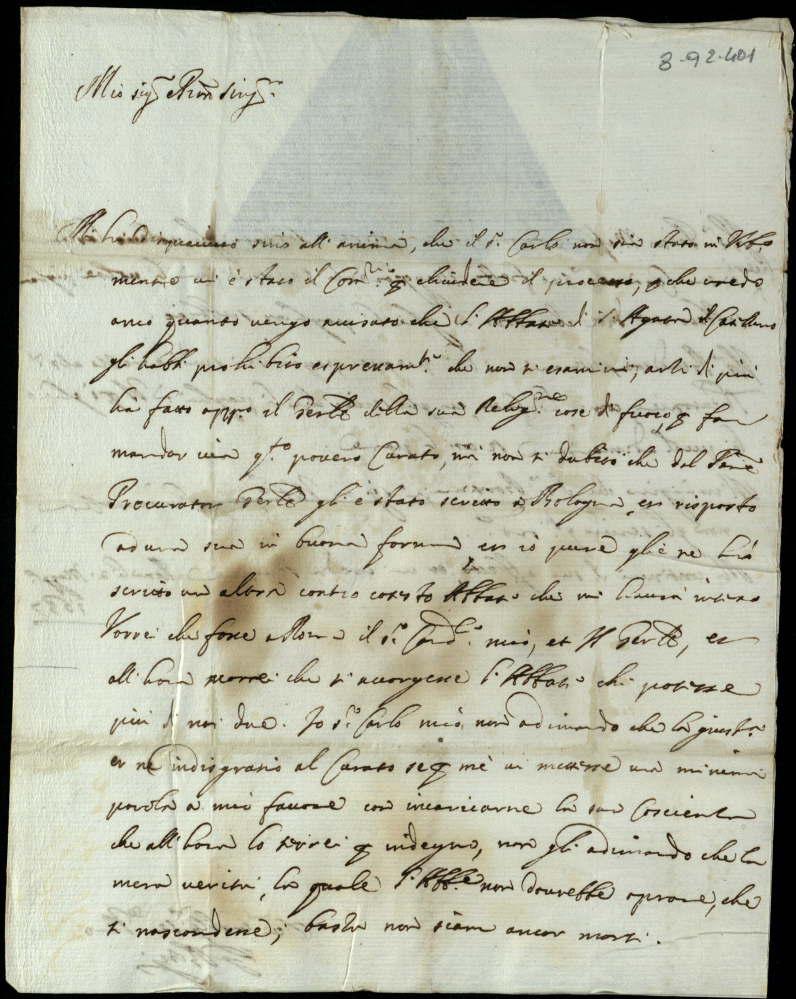 8-92-401
Mio sig.r
Mi è dispiaciuto sino all'anima, che il S.r Carlo non sia stato in
mentre vi è stato il Com.rio p chiudere il processo, p che vedo
anco quanto vengo avisato che l'Abbate di S. Agata
gli habbi prohibito espressam.te che non si esamini, anzi di più
hà fatto appo il Gen.le della sua Relig.ne cose di fuoco p far
mandar via q.to povero Curato, mà non si dubiti che dal Padre
Procurator Gen.le gli è stato scritto à Bologna, et risposto
ad una sua in buona forma, et io pure gliè ne hò
scritto un altra contro cotesto Abbate che mi haverà inteso
Vorrei che fosse a Roma il S.r Card.le mio, et il Gen.le, et
all'hora vorrei che si accorgesse l'Abbate chi potesse
più di noi due. Io S.r Carlo mio non adimando che la giust.a
et ne indisgratio al Curato se p mè vi mettesse una minima
parola a mio favore con incaricarne la sua Coscienza
che all'hora lo terrei p indegno, non gli adimando che la
mera verità, la quale l'Abb.e non dovrebbe oprare, che
si nascondesse; basta non siamo ancor morti.